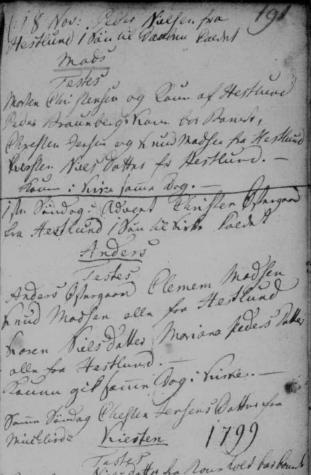 18 Nov: Peder Nielsen fra 191
Hestlund 1 Søn til Daaben kaldet
Mads
Testes
Morten Christensen og Kone af Hestlund
Peder Kone
Chresten Jensen og Knud Madsen fra Hestlund
Kirsten Niels Datter fra Hestlund. -
Kone i Kirke samme Dag. -
1ste Søndag i Advent Christen Østergaard
fra Hestlund 1 Søn til Kirke kaldet
Anders
Testes
Anders Østergaard Clemen Madsen
Knud Madsen alle fra Hestlund
Karen Niels Datter Mariane Peders Datter
alle fra Hestlund -
Konen gik samme Dag i Kirke. -
Samme Søndag Chresten Jensens Datter fra
Kirsten 1799
Testes